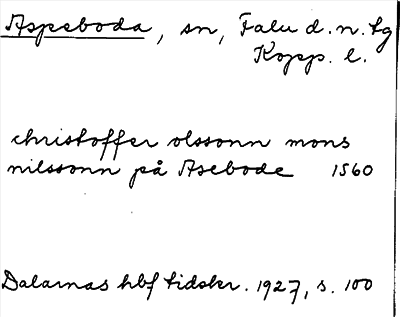 Aspeboda, sn, Falu d.n. tg
Kopp. l.
christoffer olssonn mons
nilssonn på Asebode 1560
Dalarnas hbf tidskr. 1927, s. 100